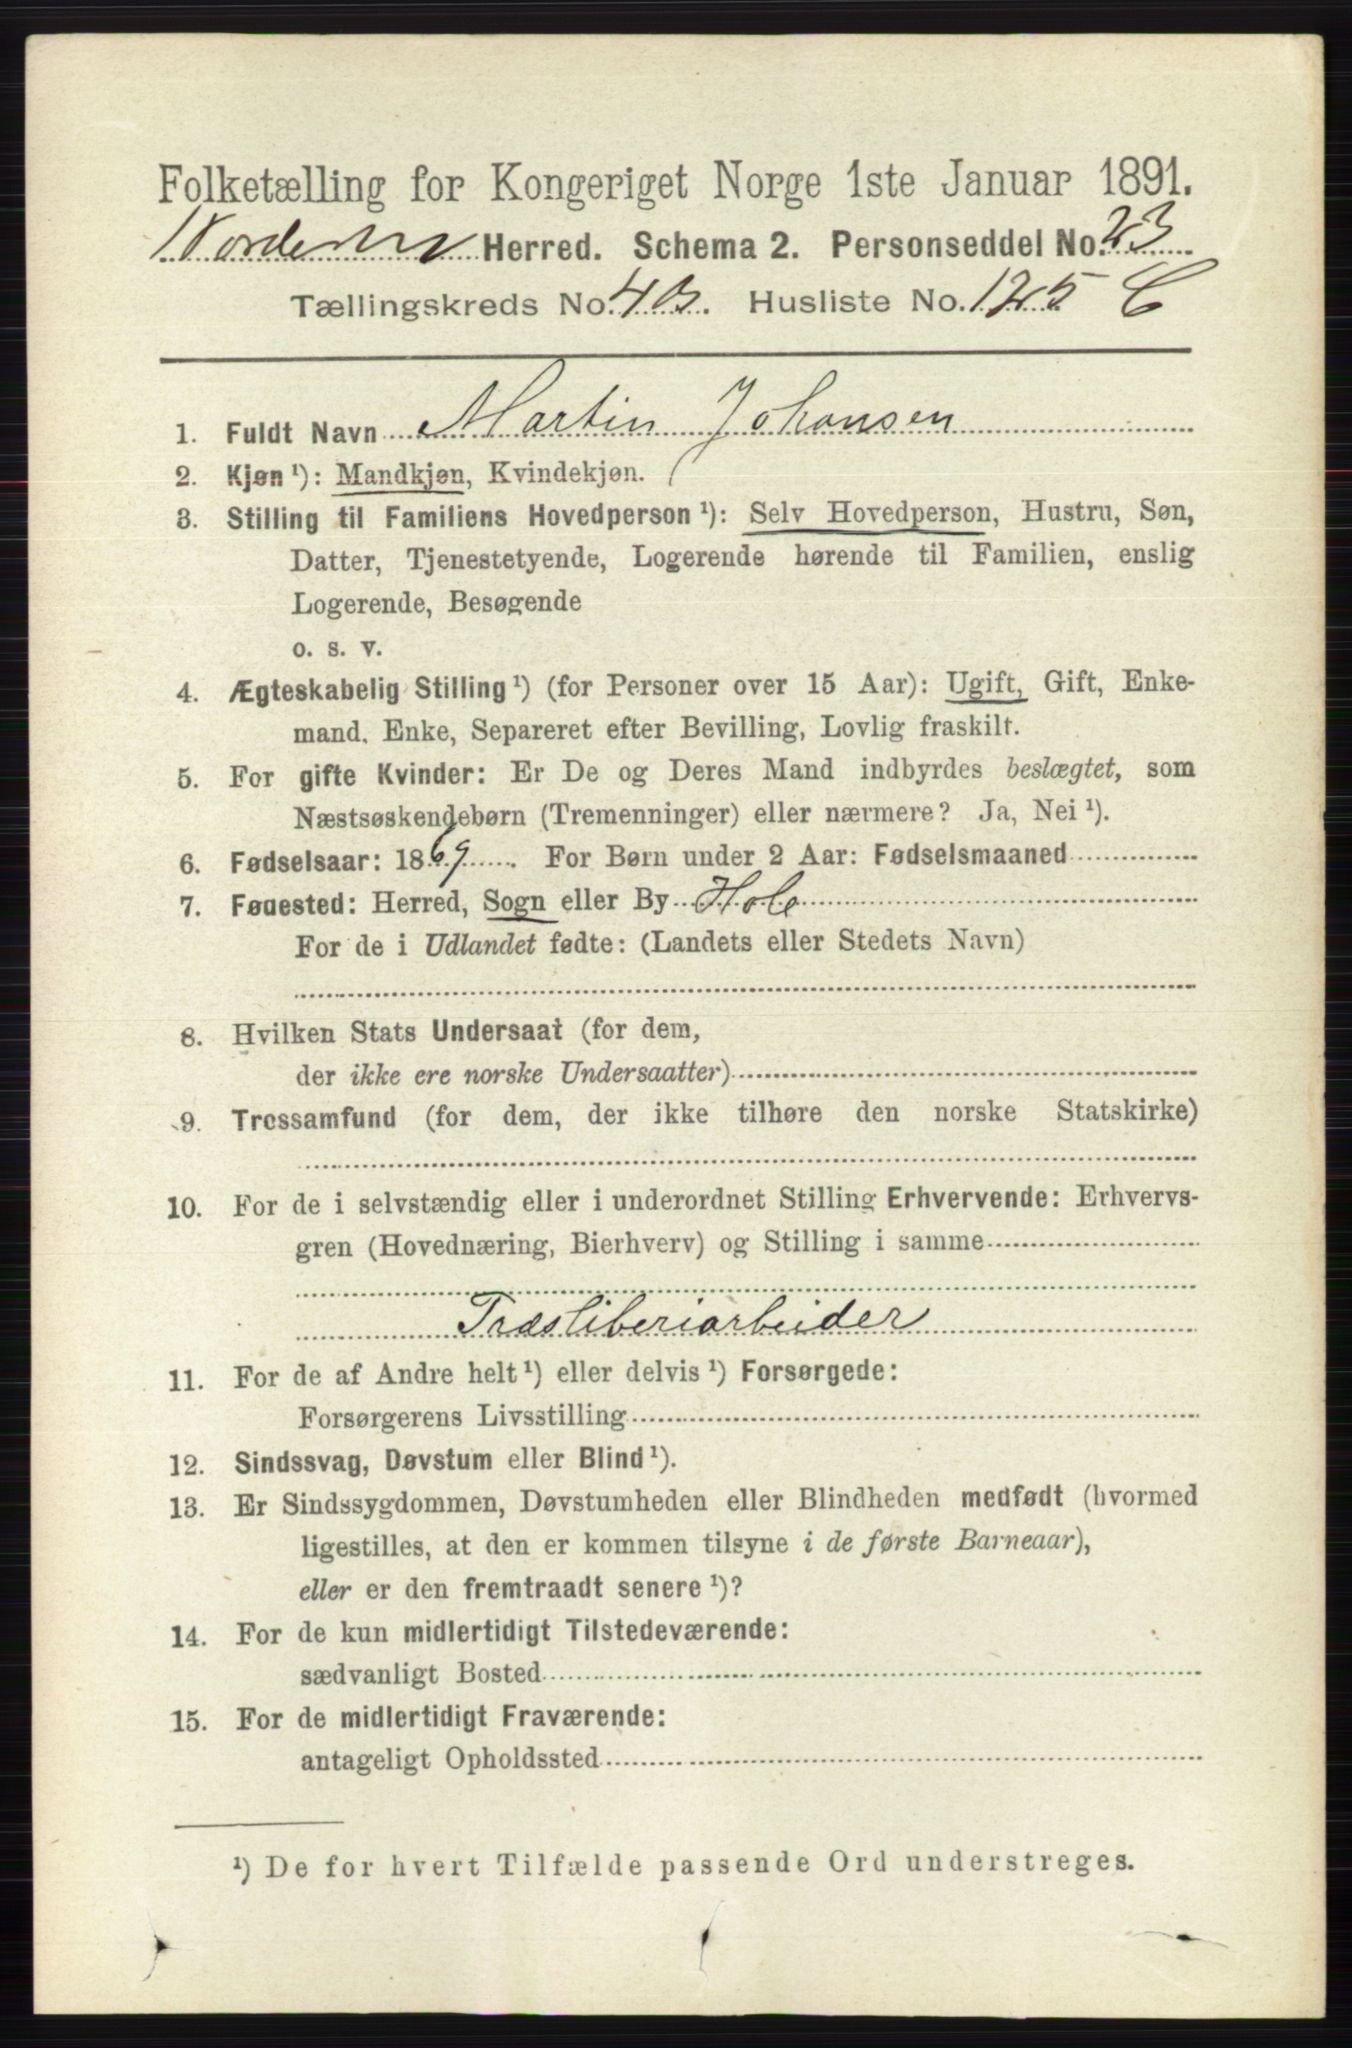 Folketælling for Kongeriget Norge 1ste Januar 1891.
Norderhov Herred. Schema 2. Personseddel No. 23
Tællingskreds No. 4 B. Husliste No. 125 C
1. Fuldt Navn Martin Johansen
2. Kjøn ¹): Mandkjøn, Kvindekjøn.
3. Stilling til Familiens Hovedperson ¹): Selv Hovedperson, Hustru, Søn,
Datter, Tjenestetyende, Logerende hørende til Familien, enslig
Logerende, Besøgende
o. s. v.
4. Ægteskabelig Stilling ¹) (for Personer over 15 Aar): Ugift, Gift, Enke-
mand, Enke, Separeret efter Bevilling, Lovlig fraskilt.
5. For gifte Kvinder: Er De og Deres Mand indbyrdes beslægtet, som
Næstsøskendebørn (Tremenninger) eller nærmere? Ja, Nei ¹).
6. Fødselsaar: 1869. For Børn under 2 Aar: Fødselsmaaned
7. Føuested: Herred, Sogn eller By Hole
For de i Udlandet fødte: (Landets eller Stedets Navn)
8. Hvilken Stats Undersaat (for dem,
der ikke ere norske Undersaatter)
9. Trossamfund (for dem, der ikke tilhøre den norske Statskirke)
10. For de i selvstændig eller i underordnet Stilling Erhvervende: Erhvervs-
gren (Hovednæring, Bierhverv) og Stilling i samme
Træsliberiarbeider
11. For de af Andre helt ¹) eller delvis ¹) Forsørgede:
Forsørgerens Livsstilling
12. Sindssvag, Døvstum eller Blind ¹).
13. Er Sindssygdommen, Døvstumheden eller Blindheden medfødt (hvormed
ligestilles, at den er kommen tilsyne i de første Barneaar),
eller er den fremtraadt senere ¹)?
14. For de kun midlertidigt Tilstedeværende:
sædvanligt Bosted
15. For de midlertidigt Fraværende:
antageligt Opholdssted
¹) De for hvert Tilfælde passende Ord understreges.